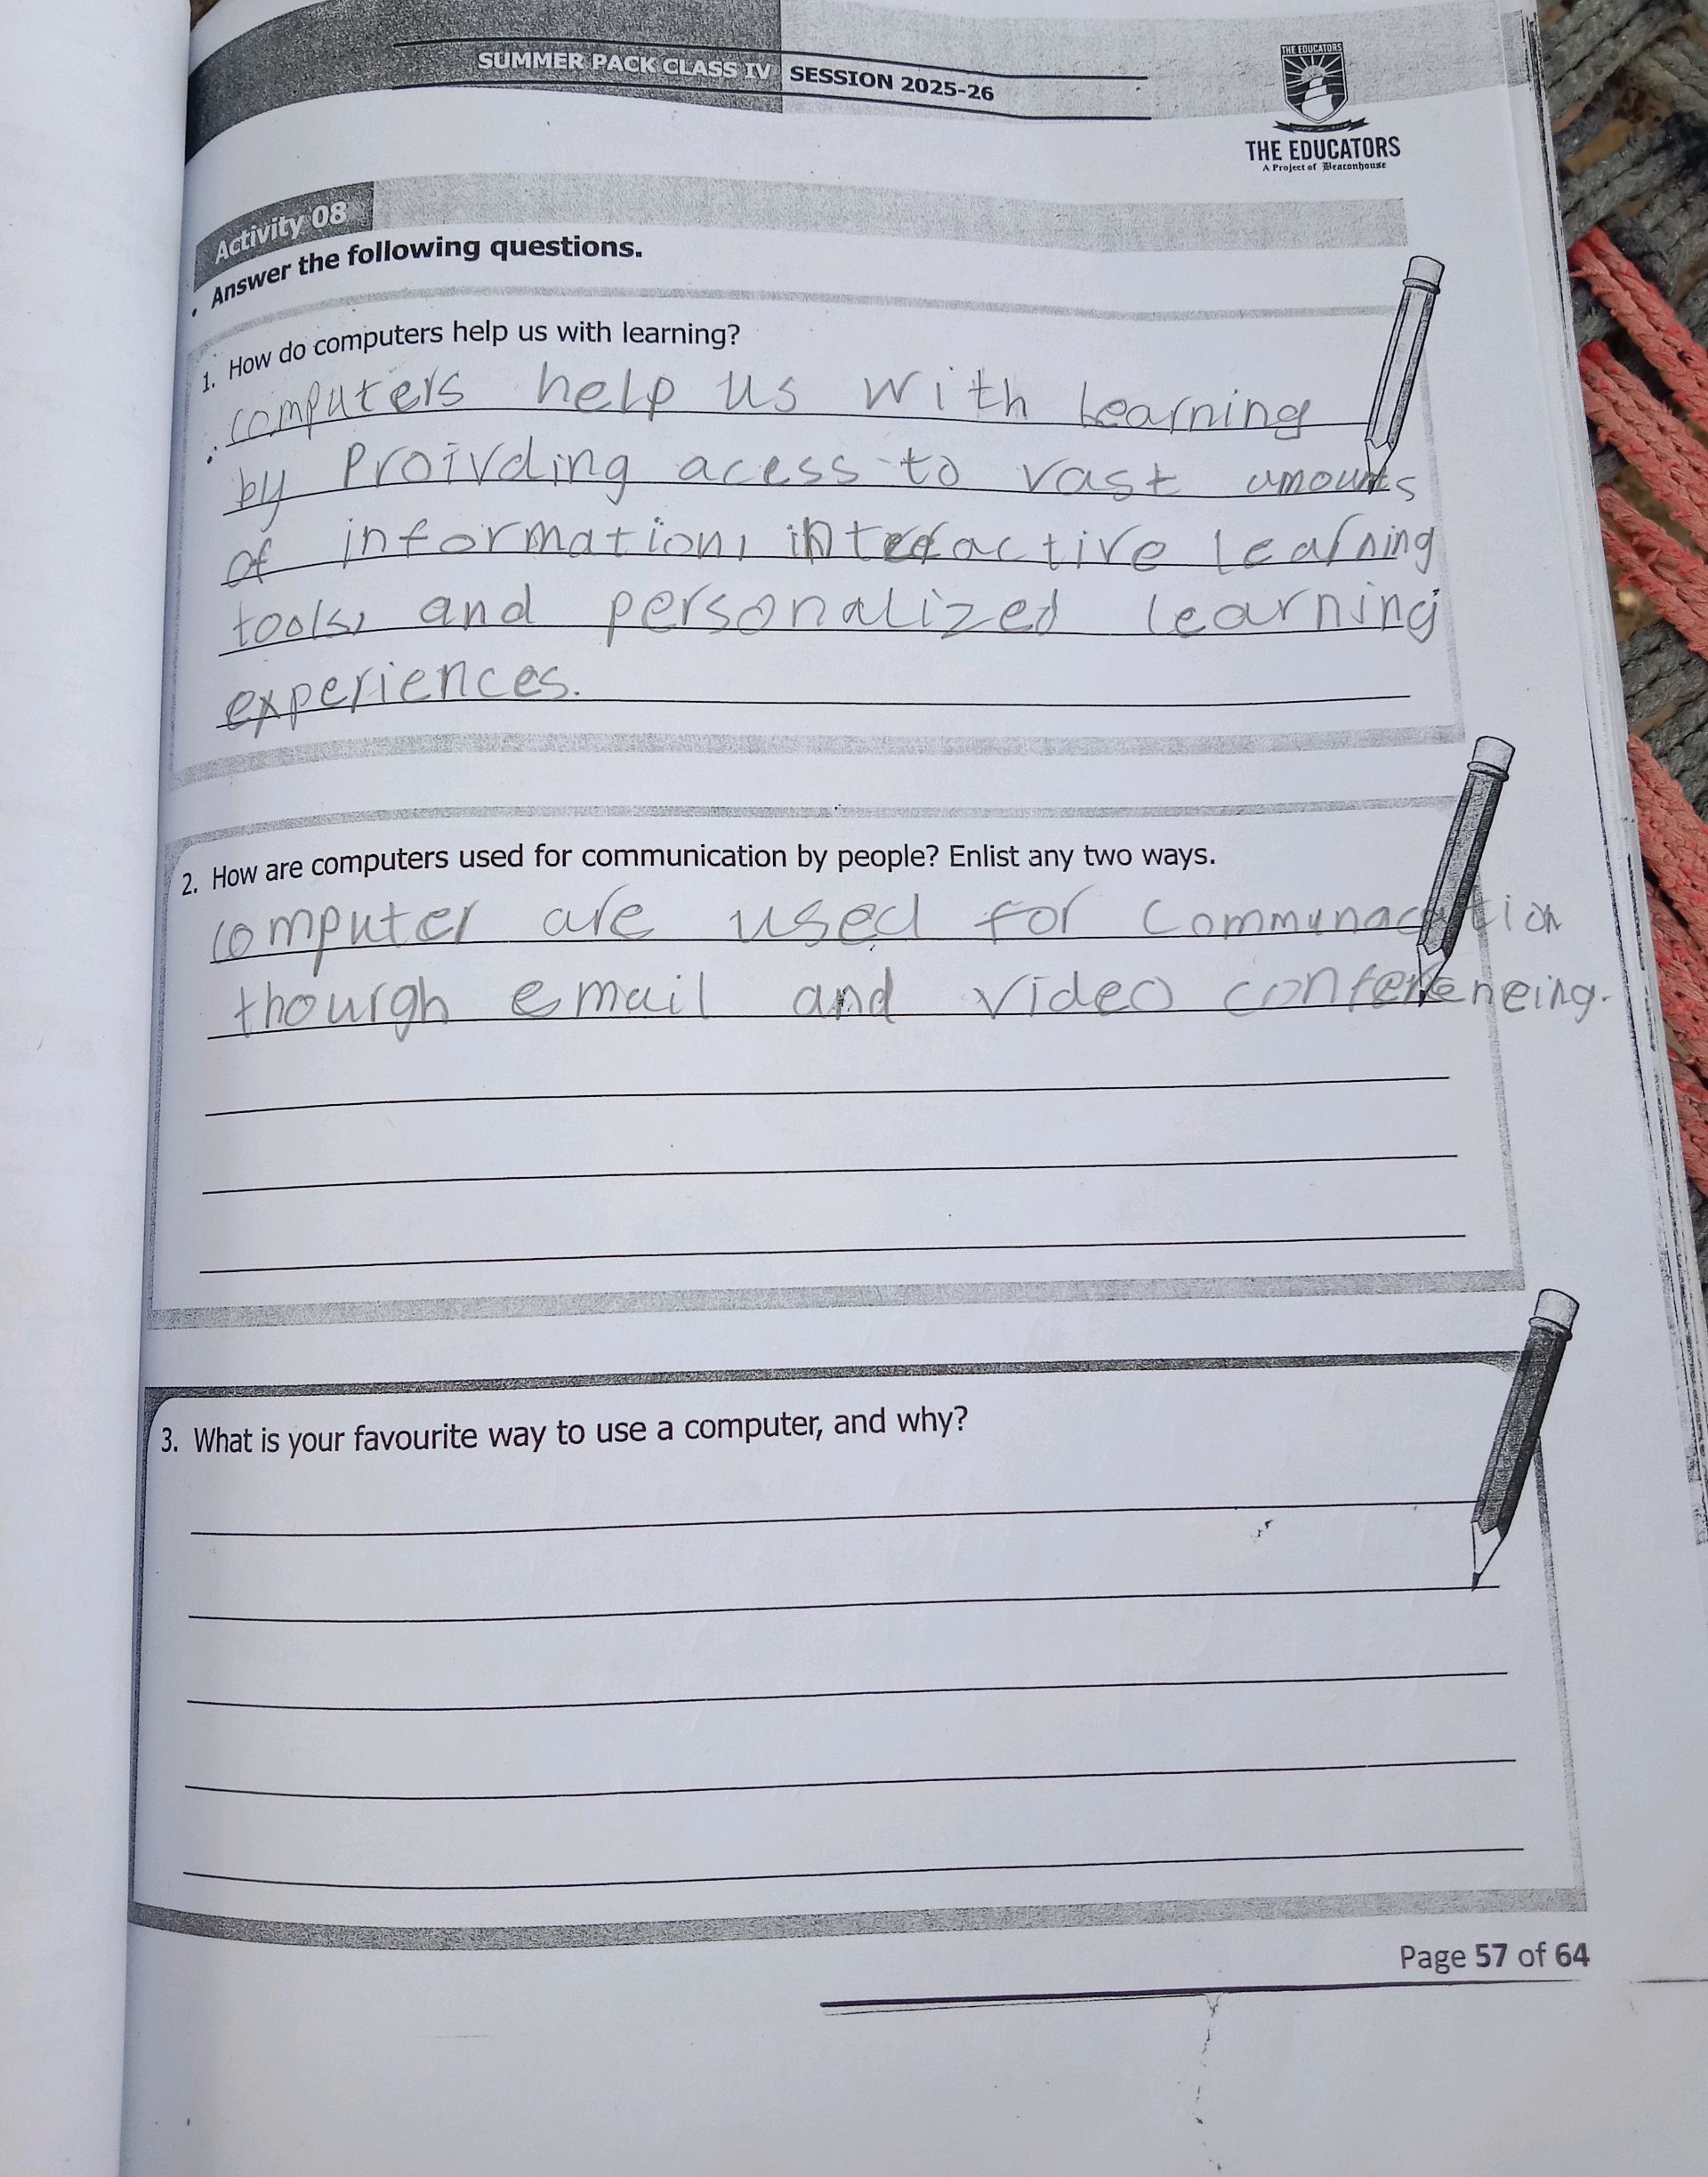 SUMMER PACK CLASS IV SESSION 2025-26
THE EDUCATORS
THE EDUCATORS
A Project of Beaconhouse
Activity 08
• Answer the following questions.
1. How do computers help us with learning?
computers help us with learning
by Proivding acess to vast amounts
of information, interactive learning
tools, and personalized learning
experiences.
2. How are computers used for communication by people? Enlist any two ways.
computer are used for
thourgh email and video
3. What is your favourite way to use a computer, and why?
Page 57 of 64